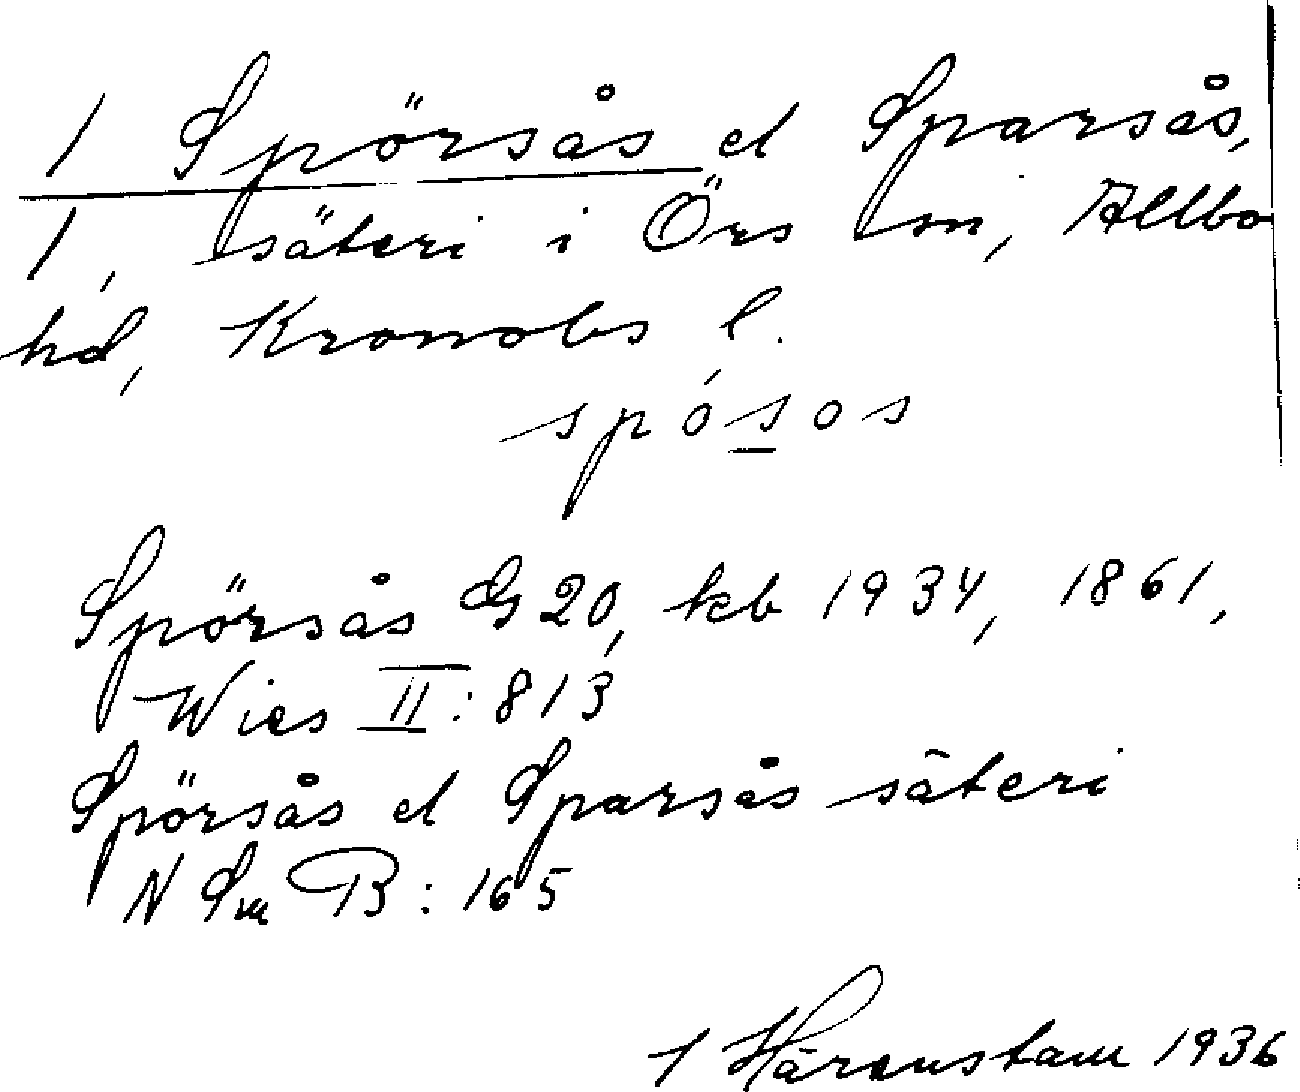 1 Spörsås el Sparsås,
1, säteri i Örs sn, Allbo
hd, Kronobs l.
spó̱sos
Spörsås G 20, kb 1934, 1861,
Wies II: 813
Spörsås el Sparsås säteri
N Sm B: 165
1 Härenstam 1936